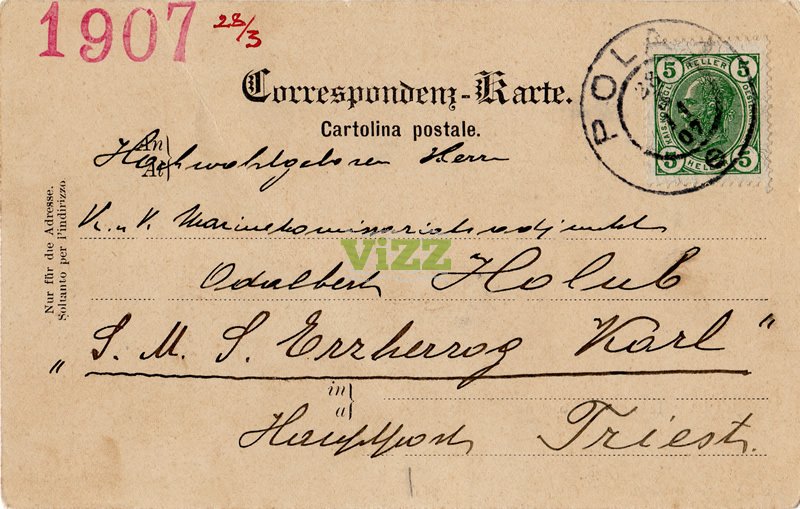 1907 28/3
Correspondenz-Karte.
Cartolina postale.
POLA
07
5 HELLER 5
5 5
An
At
Hochwohlgeboren Herrn
K. u. K. Marinekommissariatsadjunkt
ViZZ
Odalbert Holub
„S. M. S. Erzherzog Karl"
in
a
Hauptpost Triest.
Nur für die Adresse.
Soltanto per l'indirizzo